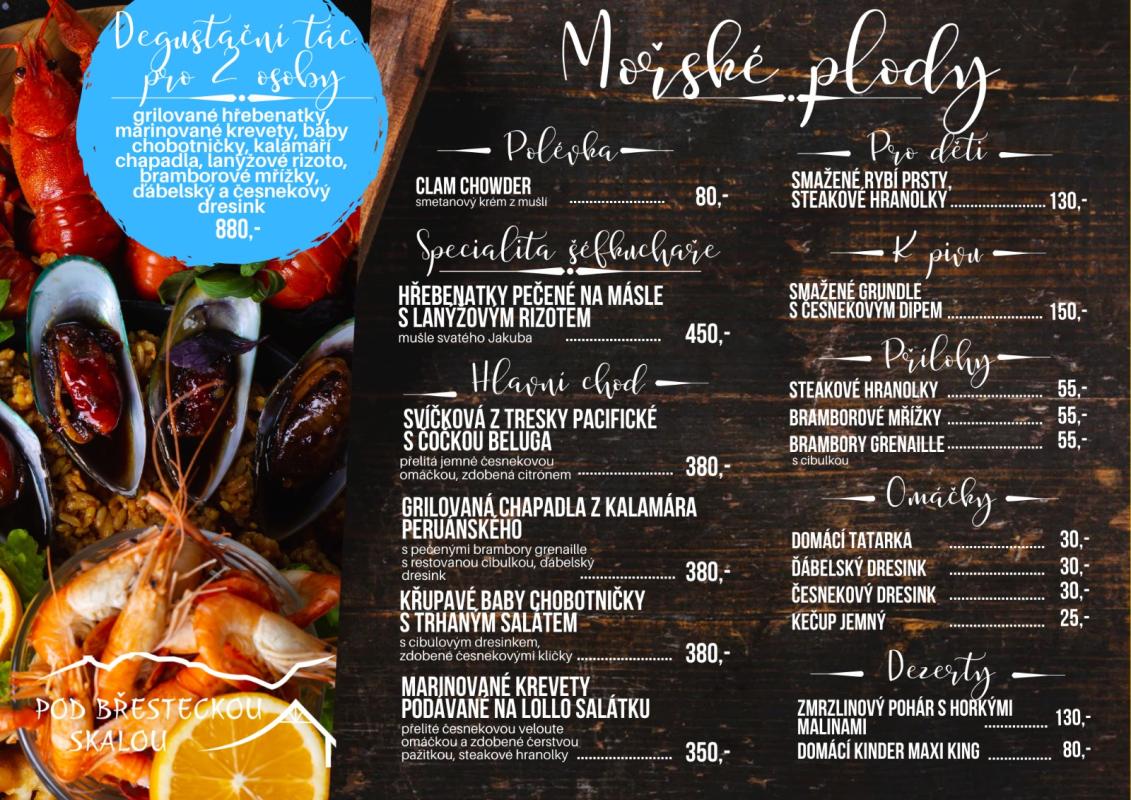 Degustační tác
pro 2 osoby
grilované hřebenatky,
marinované krevety, baby
chobotničky, kalamáří
chapadla, lanýžové rizoto,
bramborové mřížky,
ďábelský a česnekový
dresink
880,-
POD BŘESTECKOU
SKALOU
Mořské plody
Polévka
CLAM CHOWDER
smetanový krém z mušlí ........................ 80,-
Specialita šéfkuchaře
HŘEBENATKY PEČENÉ NA MÁSLE
S LANÝŽOVÝM RIZOTEM
mušle svatého Jakuba ........................ 450,-
Hlavní chod
SVÍČKOVÁ Z TRESKY PACIFICKÉ
S ČOČKOU BELUGA
přelitá jemně česnekovou
omáčkou, zdobená citrónem ........................ 380,-
GRILOVANÁ CHAPADLA Z KALAMÁRA
PERUÁNSKÉHO
s pečenými brambory grenaille
s restovanou cibulkou, ďábelský
dresink ........................ 380,-
KŘUPAVÉ BABY CHOBOTNIČKY
S TRHANÝM SALÁTEM
s cibulovým dresinkem,
zdobené česnekovými klíčky ........................ 380,-
MARINOVANÉ KREVETY
PODÁVANÉ NA LOLLO SALÁTKU
přelité česnekovou veloute
omáčkou a zdobené čerstvou
pažitkou, steakové hranolky ........................ 350,-
Pro děti
SMAŽENÉ RYBÍ PRSTY,
STEAKOVÉ HRANOLKY ........................ 130,-
K pivu
SMAŽENÉ GRUNDLE
S ČESNEKOVÝM DIPEM ........................ 150,-
Přílohy
STEAKOVÉ HRANOLKY ........................ 55,-
BRAMBOROVÉ MŘÍŽKY ........................ 55,-
BRAMBORY GRENAILLE ........................ 55,-
s cibulkou
Omáčky
DOMÁCÍ TATARKA ........................ 30,-
ĎÁBELSKÝ DRESINK ........................ 30,-
ČESNEKOVÝ DRESINK ........................ 30,-
KEČUP JEMNÝ ........................ 25,-
Dezerty
ZMRZLINOVÝ POHÁR S HORKÝMI
MALINAMI ................ 130,-
DOMÁCÍ KINDER MAXI KING ................ 80,-